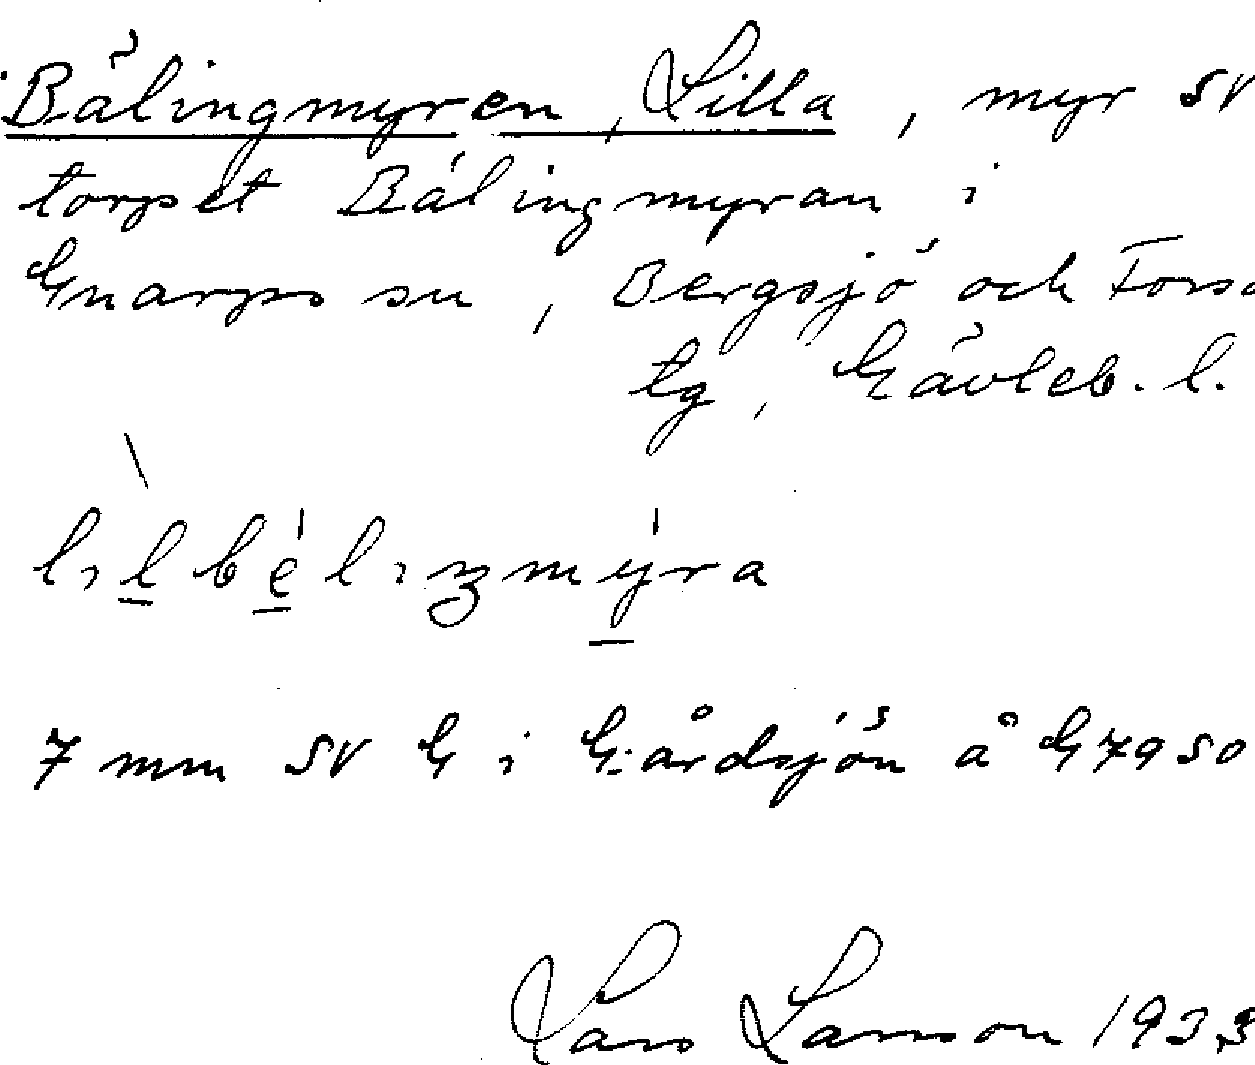 Bälingmyren, Lilla, myr SV
torpet Bälingmyran i
Gnarps sn, Bergsjö och Forsa
tg, Gävleb. l.
7 mm SV G i G:årdsjön å G7950
Lars Larsson 1933